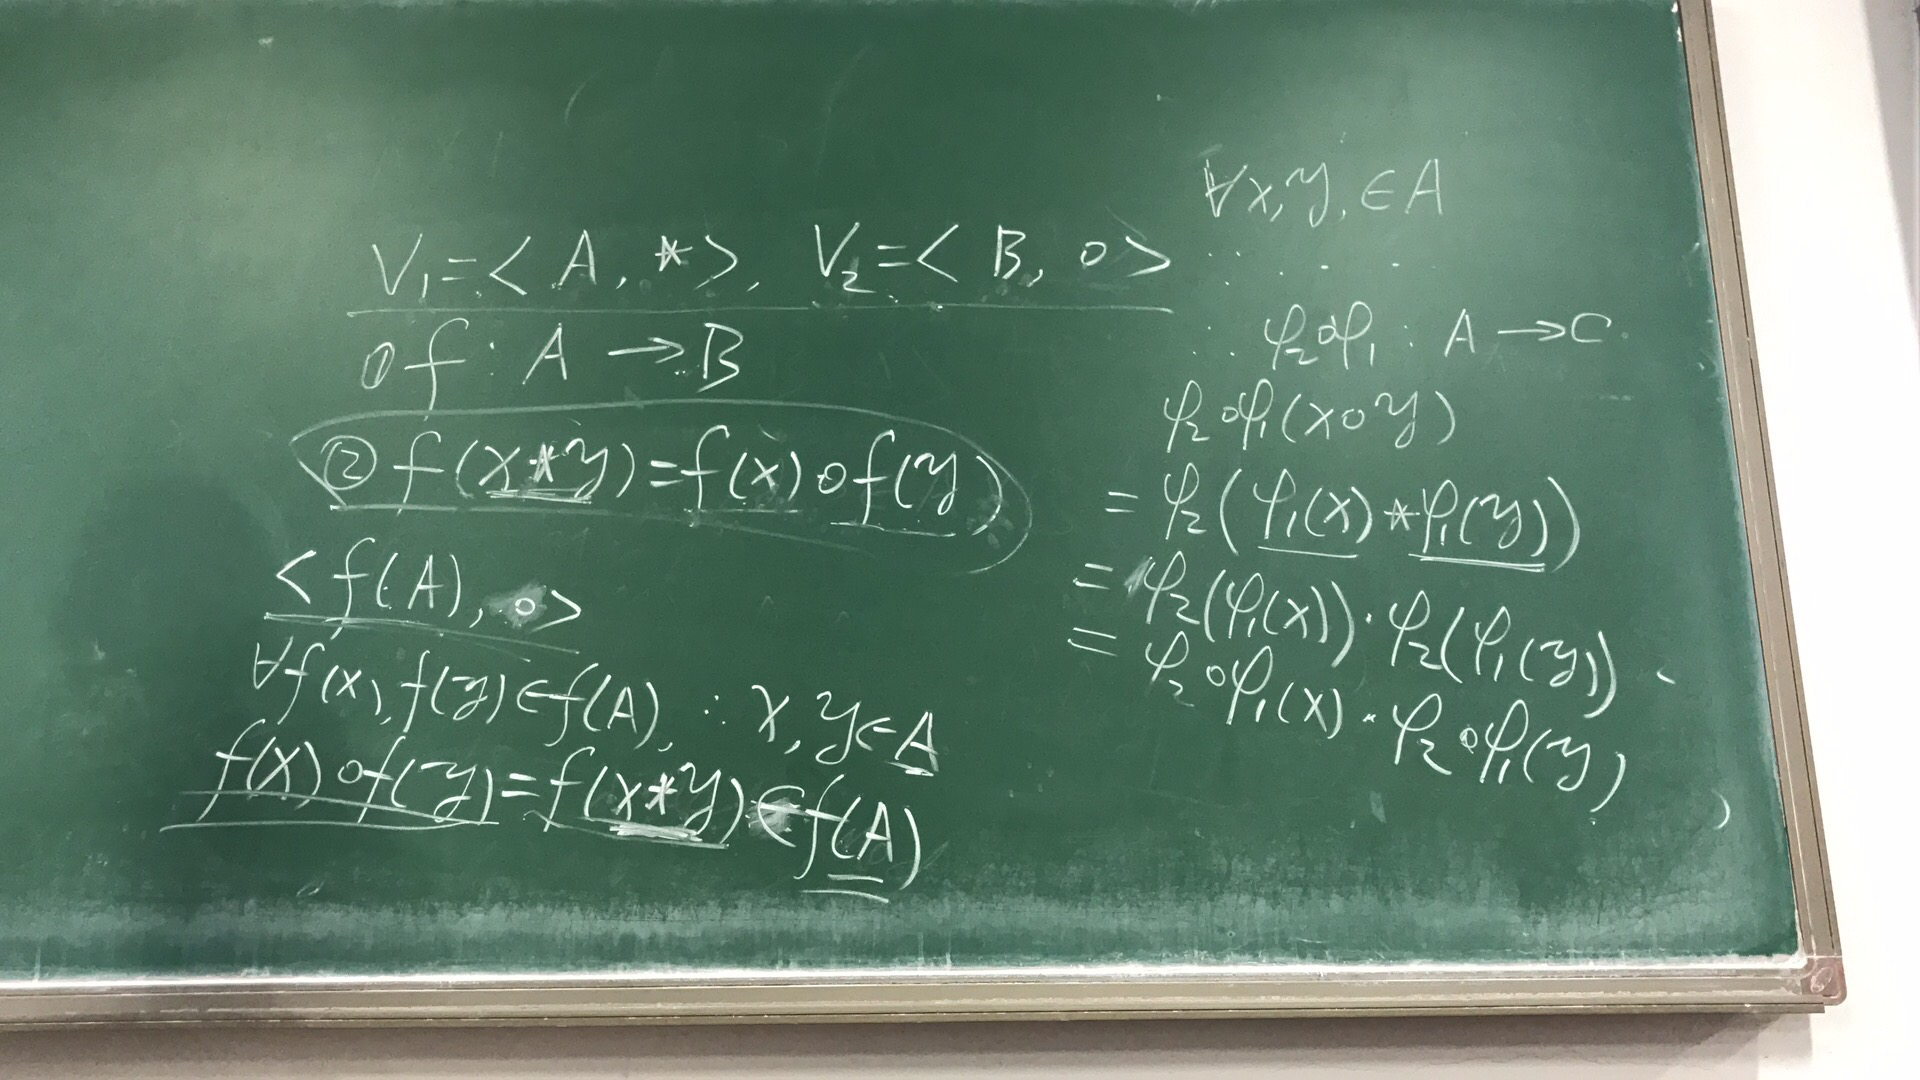 V₁=<A,*>, V₂=<B,∘>
① f: A→B
② f(x*y)=f(x)∘f(y)
<f(A),∘>
∀f(x),f(y)∈f(A), ∵ x,y∈A
f(x)∘f(y)=f(x*y)∈f(A)
∀x,y,∈A
∴ φ₂∘φ₁: A→C.
φ₂∘φ₁(x∘y)
=φ₂(φ₁(x)*φ₁(y))
=φ₂(φ₁(x))·φ₂(φ₁(y))
=φ₂∘φ₁(x)·φ₂∘φ₁(y)